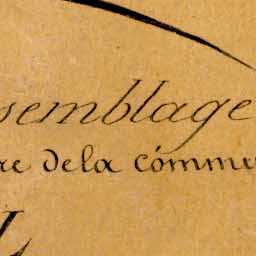 semblage
re dela comm
L